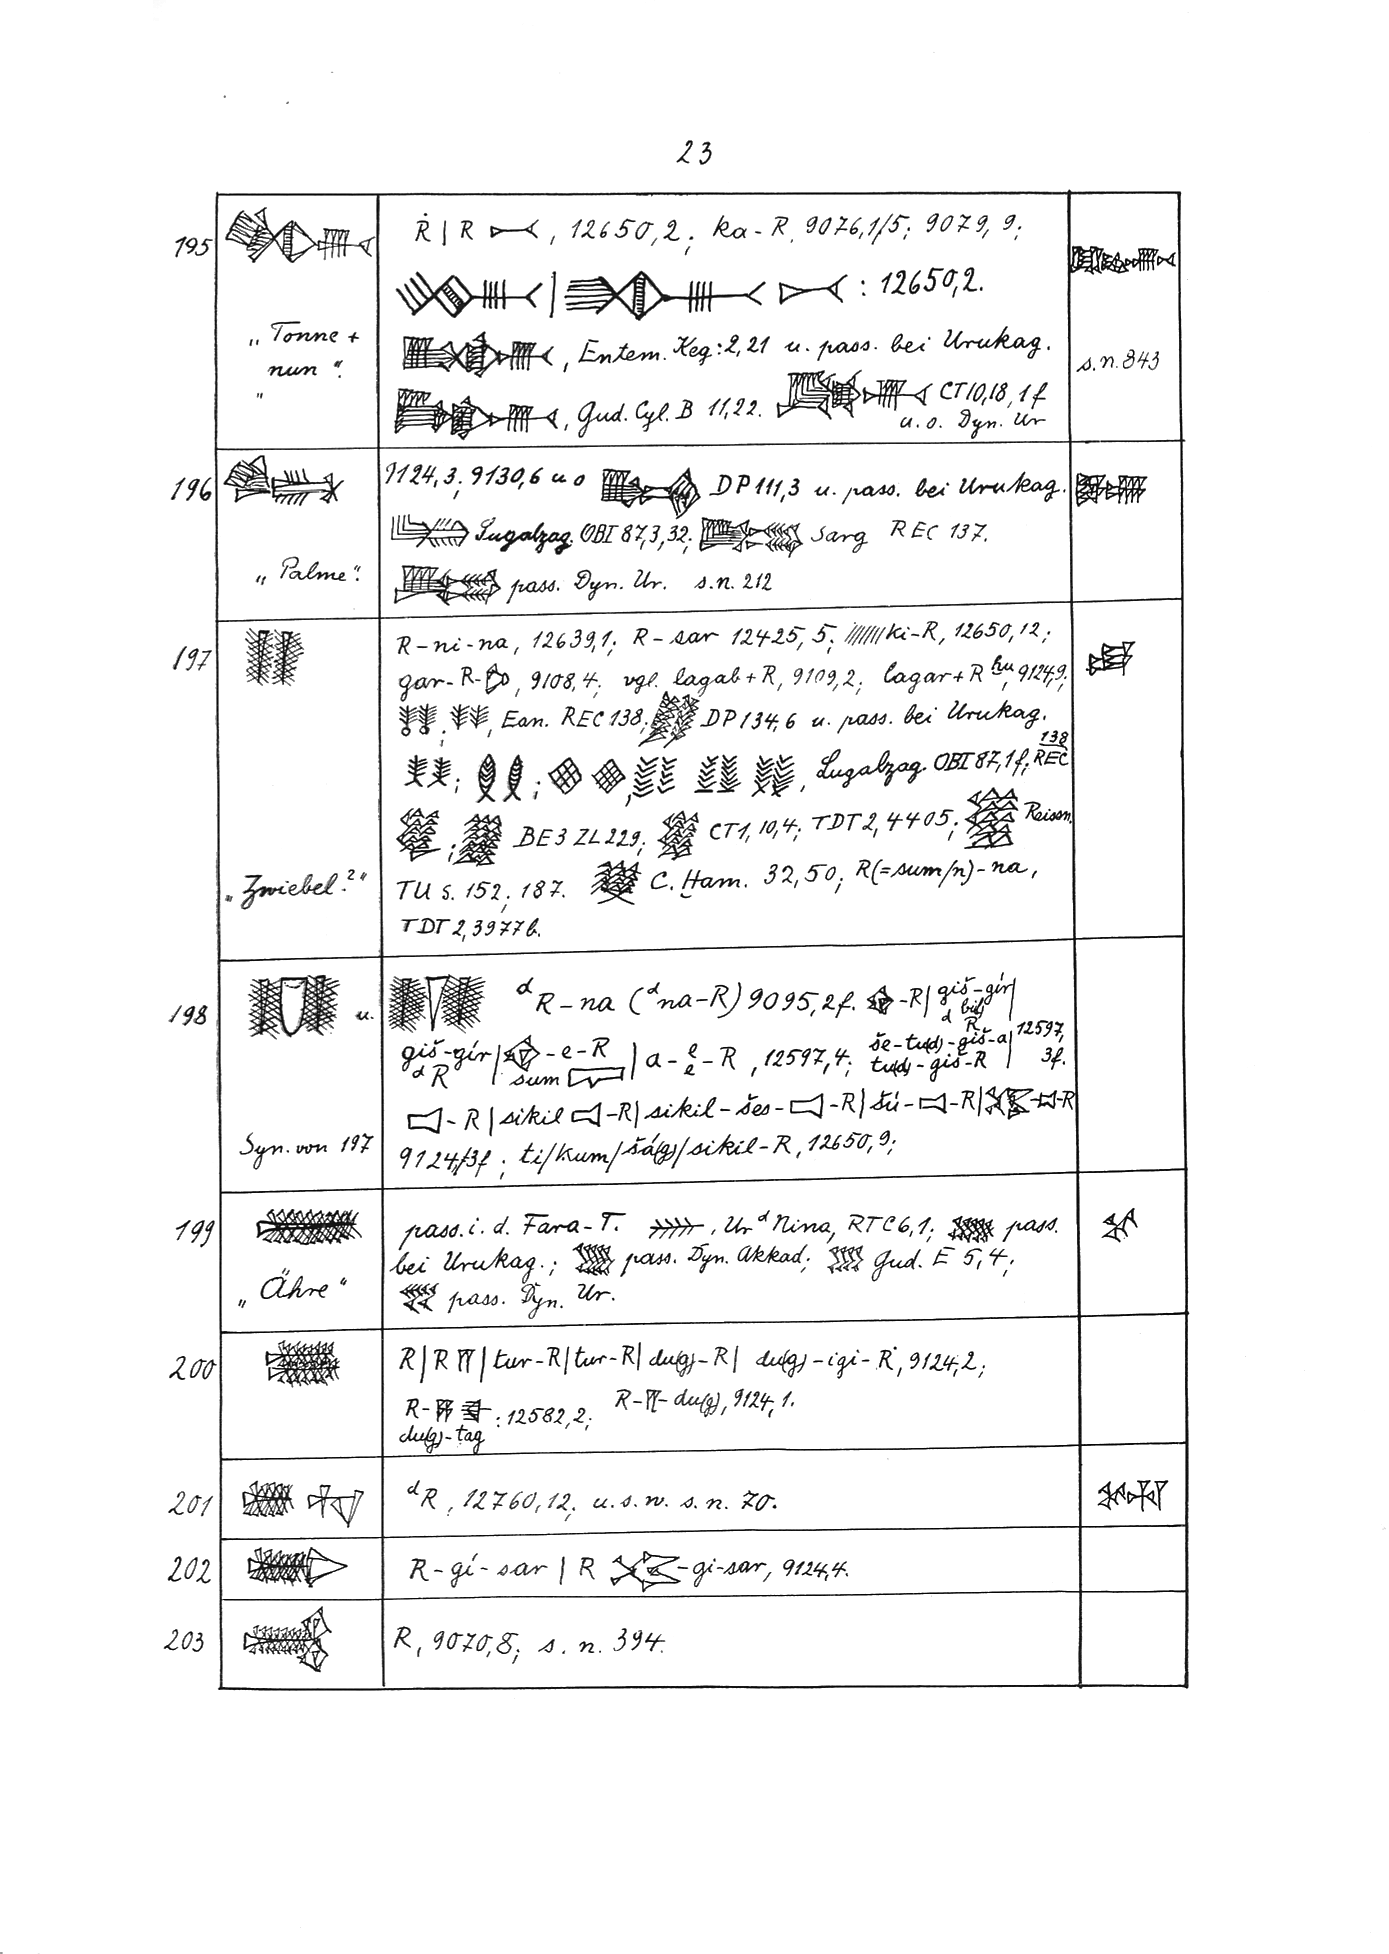 23
195
„Tonne + nun“.
Ṙ | R , 12650,2; ka-R, 9076,1/5; 9079,9;
| : 12650,2.
, Entem. Keg: 2,21 u. pass. bei Urukag.
, Gud. Cyl. B 11,22. CT10,18,1f
u. o. Dyn. Ur
s.n. 843
196
„Palme“.
9124,3; 9130,6 u o DP 111,3 u. pass. bei Urukag.
Lugalzag. OBI 87,3,32; Sarg REC 137.
pass. Dyn. Ur. s.n. 212
197
„Zwiebel?“
R-ni-na, 12639,1; R-sar 12425,5; ki-R, 12650,12;
gar-R- , 9108,4; vgl. lagab+R, 9109,2; lagar+R hu, 9124,9;
; , Ean. REC 138; DP 134,6 u. pass. bei Urukag.
; ; , , Lugalzag. OBI 87,1f; REC 138
; BE3 ZL 229; CT1,10,4; TDT 2,4405; Reissn.
TU s. 152; 187. C. Ḫam. 32,50; R(=sum/n)-na,
TDT 2,3977b.
198
u.
Syn. von 197
d R-na (d na-R) 9095,2f. -R| giš-gír|
giš-gír d R | -e-R sum | a-e e-R, 12597,4; še-tu(d)-giš-a| tu(d)-giš-R | 12597, 3f.
-R | sikil -R | sikil-šes- -R | šú- -R | -R
9124/3f; ti/kum/šá(g)/sikil-R, 12650,9;
199
„Ähre“
pass. i. d. Fara-T. , Ur d Nina, RTC 6,1; pass.
bei Urukag.; pass. Dyn. Akkad; Gud. E 5,4;
pass. Dyn. Ur.
200
R | R | tur-R | tur-R | du(g)-R | du(g)-igi-R, 9124,2;
R- du(g)-tag : 12582,2; R- -du(g), 9124,1.
201
d R, 12760,12; u.s.w. s.n. 70.
202
R-gí-sar | R -gi-sar, 9124,4.
203
R, 9070,8; s. n. 394.